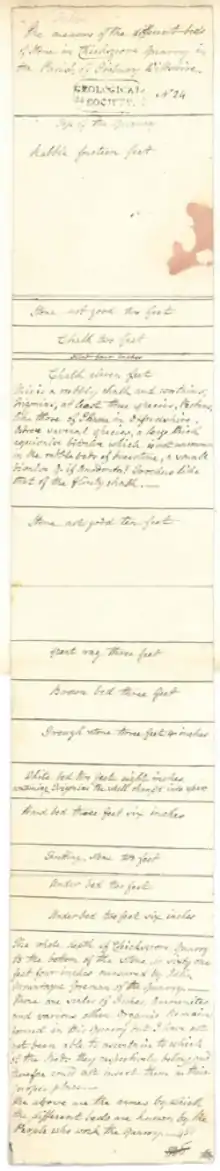 The measure of the different beds
of Stone in Chicksgrove Quarry in
the Parish of Tisbury Wiltshire.
GEOLOGICAL
SOCIETY.
No 24
Top of the Quarry
Rubble fourteen feet
Stone not good two feet
Chalk two feet
Flint four inches
Chalk eleven feet
This is a rubbly chalk and contains,
at least three species,
like those of in Oxfordshire.
several species, a large thick
bivalve which is not uncommon
in the rubble beds of limestone, a small
bivalve
that of the flinty chalk.
Stone not good ten feet
rag three feet
Brown bed three feet
Trough stone three feet 4 inches
White bed two feet eight inches
containing the shell changed into
Hard bed three feet six inches
Stone two feet
Under bed two feet
Under bed two feet six inches
The whole depth of Chicksgrove Quarry
to the bottom of the Stone is sixty one
feet four inches measured by John
Montague foreman of the Quarry.
There are scales of fishes
and various other Organic Remains
found in this Quarry but I have not
been able to ascertain to which
of the beds they respectively belong and
therefore could not insert them in their
proper places
The above are the names by which
the different beds are known by the
People who work the Quarry